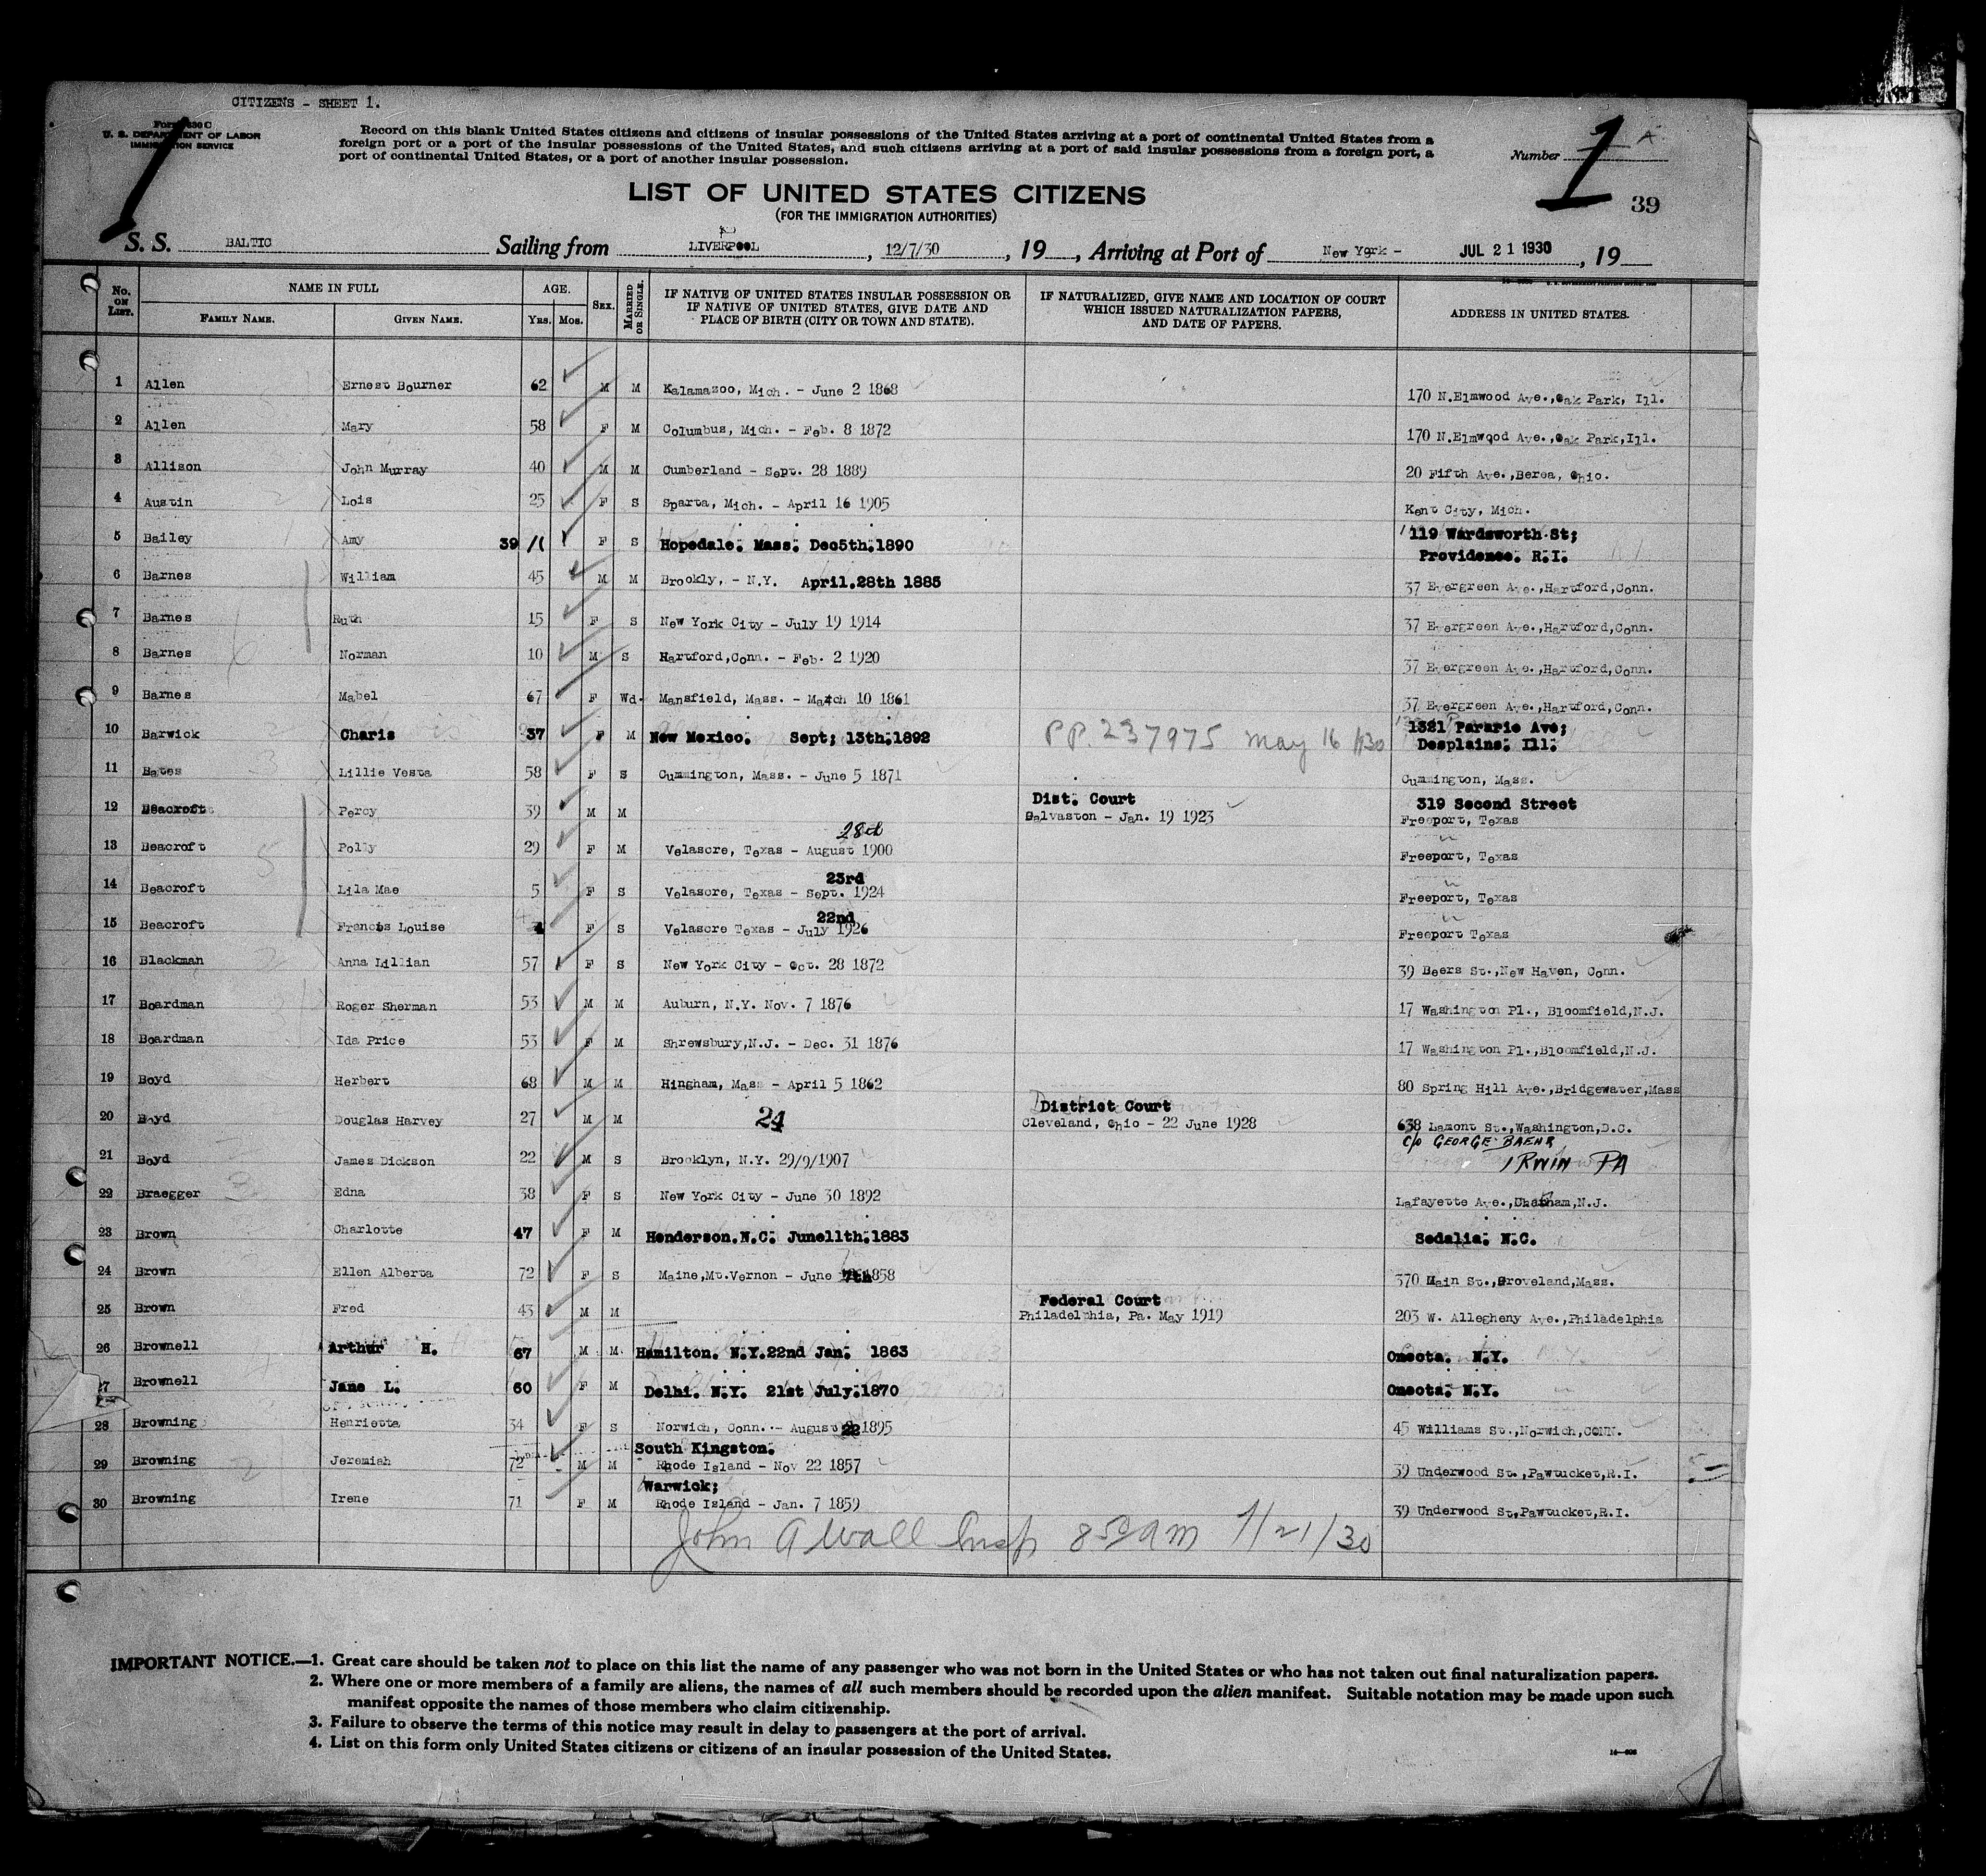 CITIZENS - SHEET 1.
Form 630 C
U. S. DEPARTMENT OF LABOR
IMMIGRATION SERVICE
Record on this blank United States citizens and citizens of insular possessions of the United States arriving at a port of continental United States from a
foreign port or a port of the insular possessions of the United States, and such citizens arriving at a port of said insular possessions from a foreign port, a
port of continental United States, or a port of another insular possession.
Number 1
39
LIST OF UNITED STATES CITIZENS
(FOR THE IMMIGRATION AUTHORITIES)
S. S. BALTIC Sailing from LIVERPOOL, 12/7/30, 19__, Arriving at Port of New York - JUL 21 1930, 19__
No. ON LIST. NAME IN FULL FAMILY NAME. GIVEN NAME. AGE. YRS. MOS. SEX. MARRIED OR SINGLE. IF NATIVE OF UNITED STATES INSULAR POSSESSION OR IF NATIVE OF UNITED STATES, GIVE DATE AND PLACE OF BIRTH (CITY OR TOWN AND STATE). IF NATURALIZED, GIVE NAME AND LOCATION OF COURT WHICH ISSUED NATURALIZATION PAPERS, AND DATE OF PAPERS. ADDRESS IN UNITED STATES.
1 Allen Ernest Bourner 62 M M Kalamazoo, Mich. - June 2 1868 170 N.Elmwood Ave.,Oak Park, Ill.
2 Allen Mary 58 F M Columbus, Mich. - Feb. 8 1872 170 N.Elmwood Ave.,Oak Park,Ill.
3 Allison John Murray 40 M M Cumberland - Sept. 28 1889 20 Fifth Ave.,Berea, Ohio.
4 Austin Lois 25 F S Sparta, Mich. - April 16 1905 Kent City, Mich.
5 Bailey Amy 39 11 F S Hopedale. Mass. Dec5th.1890 119 Wardsworth St;
Providence. R.I.
6 Barnes William 45 M M Brookly, - N.Y. April.28th 1885 37 Evergreen Ave.,Hartford,Conn.
7 Barnes Ruth 15 F S New York City - July 19 1914 37 Evergreen Ave.,Hartford,Conn.
8 Barnes Norman 10 M S Hartford,Conn. - Feb. 2 1920 37 Evergreen Ave.,Hartford,Conn.
9 Barnes Mabel 67 F Wd. Mansfield, Mass. - March 10 1861 37 Evergreen Ave.,Hartford,Conn.
10 Barwick Charis 37 F M New Mexico. Sept; 13th.1892 PP. 237975 May 16 1930 1321 Pararie Ave;
Desplains. Ill.
11 Bates Lillie Vesta 58 F S Cummington, Mass. - June 5 1871 Cummington, Mass.
12 Beacroft Percy 39 M M Dist. Court
Galvaston - Jan. 19 1923 319 Second Street
Freeport, Texas
13 Beacroft Polly 29 F M Velascre, Texas - August 28th 1900 Freeport, Texas
14 Beacroft Lila Mae 5 F S Velascre, Texas - Sept. 23rd 1924 Freeport, Texas
15 Beacroft Francis Louise 4 F S Velascre Texas - July 22nd 1926 Freeport Texas
16 Blackman Anna Lillian 57 F S New York City - Oct. 28 1872 39 Beers St.,New Haven, Conn.
17 Boardman Roger Sherman 53 M M Auburn, N.Y. Nov. 7 1876 17 Washington Pl., Bloomfield,N.J.
18 Boardman Ida Price 53 F M Shrewsbury,N.J. - Dec. 31 1876 17 Washington Pl.,Bloomfield,N.J.
19 Boyd Herbert 68 M M Hingham, Mass - April 5 1862 80 Spring Hill Ave.,Bridgewater,Mass
20 Boyd Douglas Harvey 27 M M 24 District Court
Cleveland, Ohio - 22 June 1928 638 Lamont St.,Washington,D.C.
21 Boyd James Dickson 22 M S Brooklyn, N.Y. 29/9/1907 C/o GEORGE BAEHR
IRWIN PA
22 Braegger Edna 38 F S New York City - June 30 1892 Lafayette Ave.,Chatham,N.J.
23 Brown Charlotte 47 F M Henderson.N.C. June11th.1883 Sedalia. N.C.
24 Brown Ellen Alberta 72 F S Maine,Mt.Vernon - June 7th 1858 370 Main St.,Groveland,Mass.
25 Brown Fred 43 M M Federal Court
Philadelphia, Pa. May 1919 203 W. Allegheny Ave.,Philadelphia
26 Brownell Arthur H. 67 M M Hamilton. N.Y.22nd Jan. 1863 Oneota. N.Y.
27 Brownell Jane L. 60 F M Delhi. N.Y. 21st July.1870 Oneota. N.Y.
28 Browning Henrietta 34 F S Norwich, Conn. - August 22 1895 45 Williams St.,Norwich,CONN.
29 Browning Jeremiah 72 M M South Kingston.
Rhode Island - Nov 22 1857 39 Underwood St.,Pawtucket,R.I.
30 Browning Irene 71 F M Warwick;
Rhode Island - Jan. 7 1859 39 Underwood St,Pawtucket,R.I.
John A Wall Insp 850 am 7/21/30
IMPORTANT NOTICE.—1. Great care should be taken not to place on this list the name of any passenger who was not born in the United States or who has not taken out final naturalization papers.
2. Where one or more members of a family are aliens, the names of all such members should be recorded upon the alien manifest. Suitable notation may be made upon such
manifest opposite the names of those members who claim citizenship.
3. Failure to observe the terms of this notice may result in delay to passengers at the port of arrival.
4. List on this form only United States citizens or citizens of an insular possession of the United States.